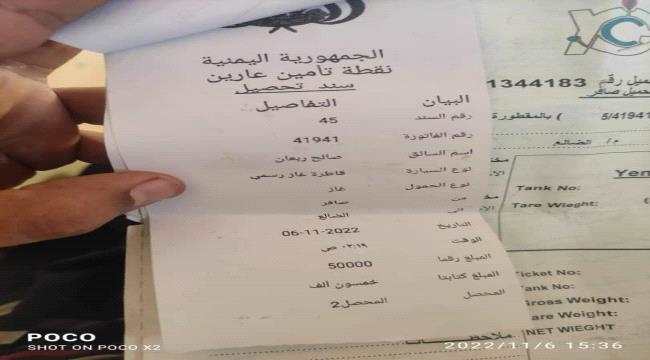 الجمهورية اليمنية
نقطة تأمين عارين
سند تحصيل
البيان التفاصيل
رقم السند 45
رقم الفاتورة 41941
اسم السائق صالح ربعان
نوع السيارة قاطرة غاز رسمي
نوع الحمول غاز
من صافر
الى الضالع
التاريخ 06-11-2022
الوقت ٠٣:١٩ ص
المبلغ رقما 50000
المبلغ كتابتا خمسون الف
المحصل المحصل2
1344183
ميل رقم
حميل صافر
5/41941 ) بالمقطورة
م/ الضالع
Yem
Tank No:
Tare Wieght:
Ticket No:
Tank No:
Gross Weight:
Tare Weight:
NET WIEGHT
POCO
SHOT ON POCO X2
2022/11/6 15:36